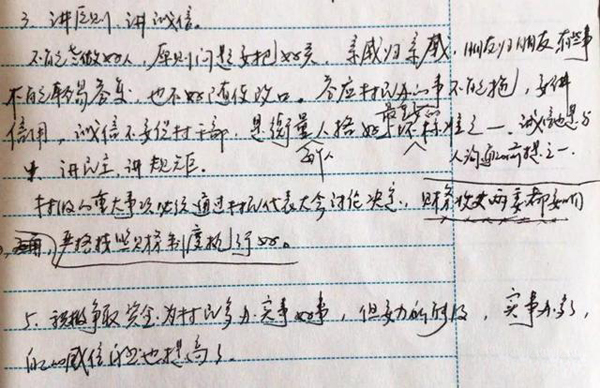 3. 讲原则, 讲诚信。
不能当做好人, 原则问题要把好关, 亲戚归亲戚, 朋友归朋友 有些事
不能轻易答复, 也不好随便改口。答应村民办的事不能拖, 要讲
信用, 诚信不仅仅村干部, 是衡量人格好坏标准之一, 诚信也是与
最重要的
两个人
人沟通的前提之一.
4 讲民主, 讲规矩.
村收的重大事项必须通过村民代表大会讨论决定, 财务收支两委都要
严格按照财务制度执行好。
5. 积极争取资金, 为村民多办实事好事, 但要力所能及, 实事办了,
自己的威信也提高了.